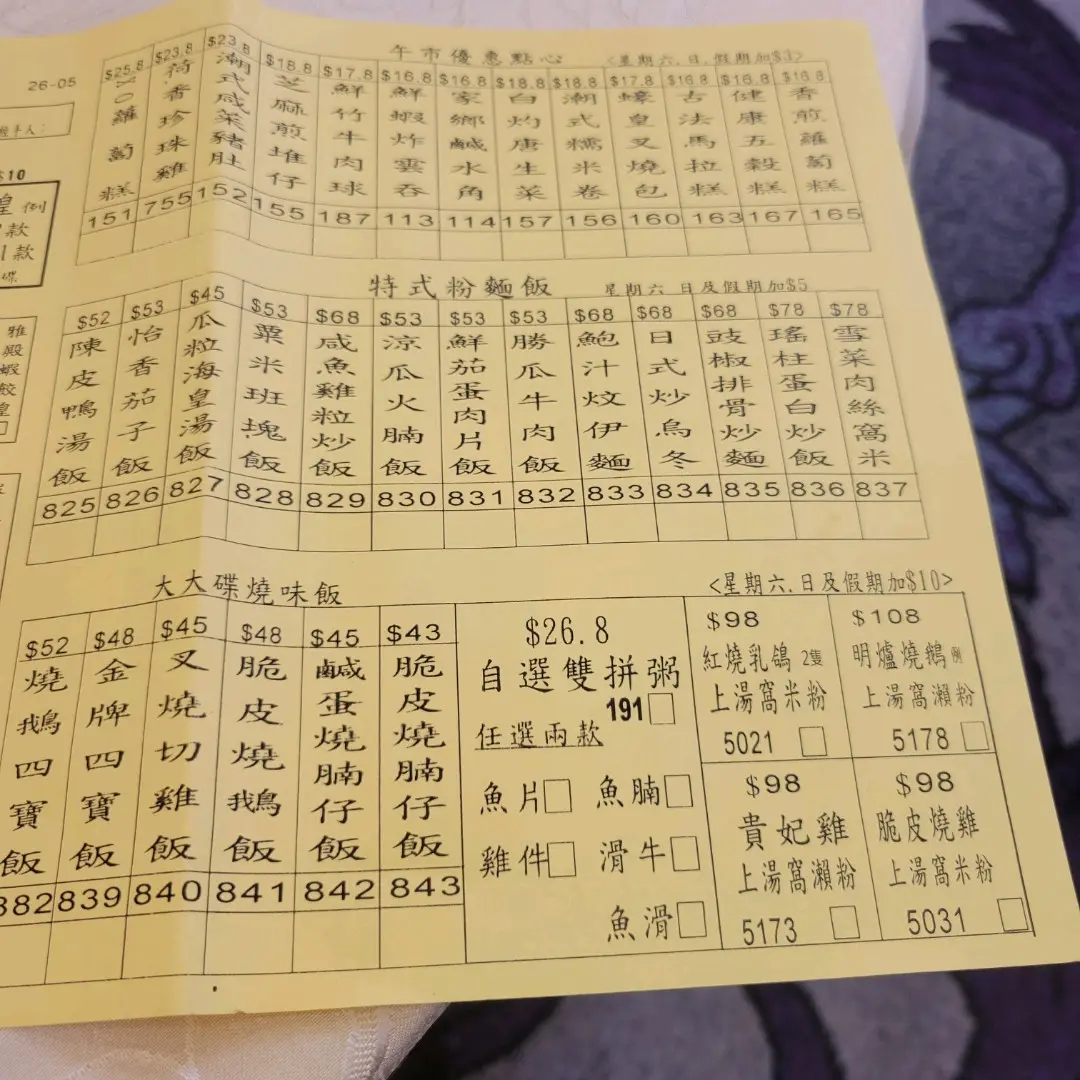 26-05
$10
午市優惠點心 <星期六.日.假期加$3>
$25.8 $23.8 $23.8 $18.8 $17.8 $16.8 $16.8 $18.8 $18.8 $17.8 $16.8 $16.8 $16.8
XO蘿蔔糕
荷香珍珠雞
潮式咸菜豬肚
芝麻煎堆仔
鮮竹牛肉球
鮮蝦炸雲吞
家鄉鹹水角
白灼唐生菜
潮式糯米卷
蠔皇叉燒包
古法馬拉糕
健康五穀糕
香煎蘿蔔糕
151 755 152 155 187 113 114 157 156 160 163 167 165
特式粉麵飯 星期六 日及假期加$5
$52 $53 $45 $53 $68 $53 $53 $53 $68 $68 $68 $78 $78
陳皮鴨湯飯
怡香茄子飯
瓜粒海皇湯飯
粟米班塊飯
咸魚雞粒炒飯
涼瓜火腩飯
鮮茄蛋肉片飯
勝瓜牛肉飯
鮑汁炆伊麵
日式炒烏冬
豉椒排骨炒麵
瑤柱蛋白炒飯
雪菜肉絲窩米
825 826 827 828 829 830 831 832 833 834 835 836 837
大大碟燒味飯 <星期六.日及假期加$10>
$52 $48 $45 $48 $45 $43
燒鵝四寶飯
金牌四寶飯
叉燒切雞飯
脆皮燒鵝飯
鹹蛋燒腩仔飯
脆皮燒腩仔飯
882 839 840 841 842 843
$26.8
自選雙拼粥
191
任選兩款
魚片 魚腩
雞件 滑牛
魚滑
$98
紅燒乳鴿 2隻
上湯窩米粉
5021
$108
明爐燒鵝 例
上湯窩瀨粉
5178
$98
貴妃雞
上湯窩瀨粉
5173
$98
脆皮燒雞
上湯窩米粉
5031